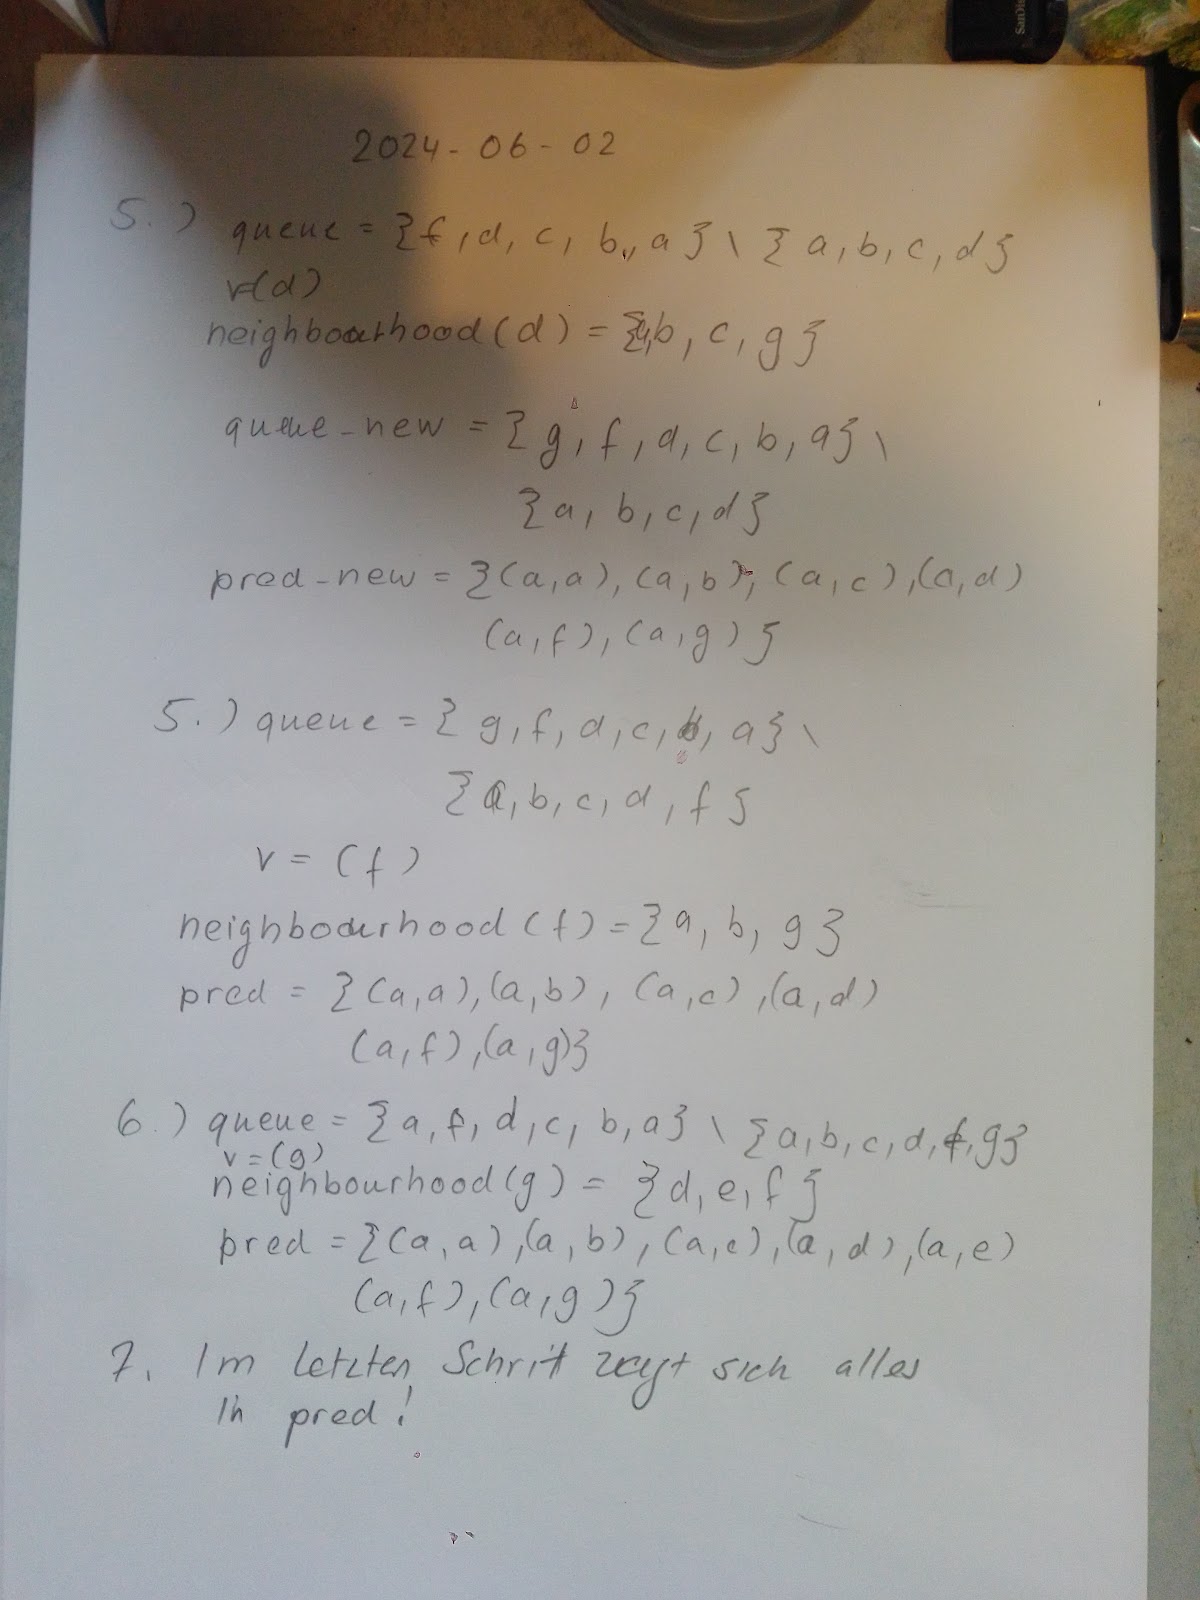 SanDis
2024-06-02
5.) queue = {f, d, c, b, a} \ { a, b, c, d }
v=(d)
neighbourhood(d) = {a,b, c, g}
queue_new = { g, f, d, c, b, a} \
{a, b, c, d}
pred_new = {(a,a), (a,b), (a,c), (a,d)
(a,f), (a,g) }
5.) queue = { g, f, d, c, b, a} \
{a, b, c, d, f }
v = (f)
neighbourhood (f) = {a, b, g}
pred = {(a,a), (a,b), (a,c), (a,d)
(a,f), (a,g)}
6.) queue = {a, f, d, c, b, a} \ {a, b, c, d, f, g}
v=(g)
neighbourhood(g) = {d, e, f}
pred = {(a,a), (a,b), (a,c), (a,d), (a,e)
(a,f), (a,g)}
7. Im letzten Schritt zeigt sich alles
in pred!